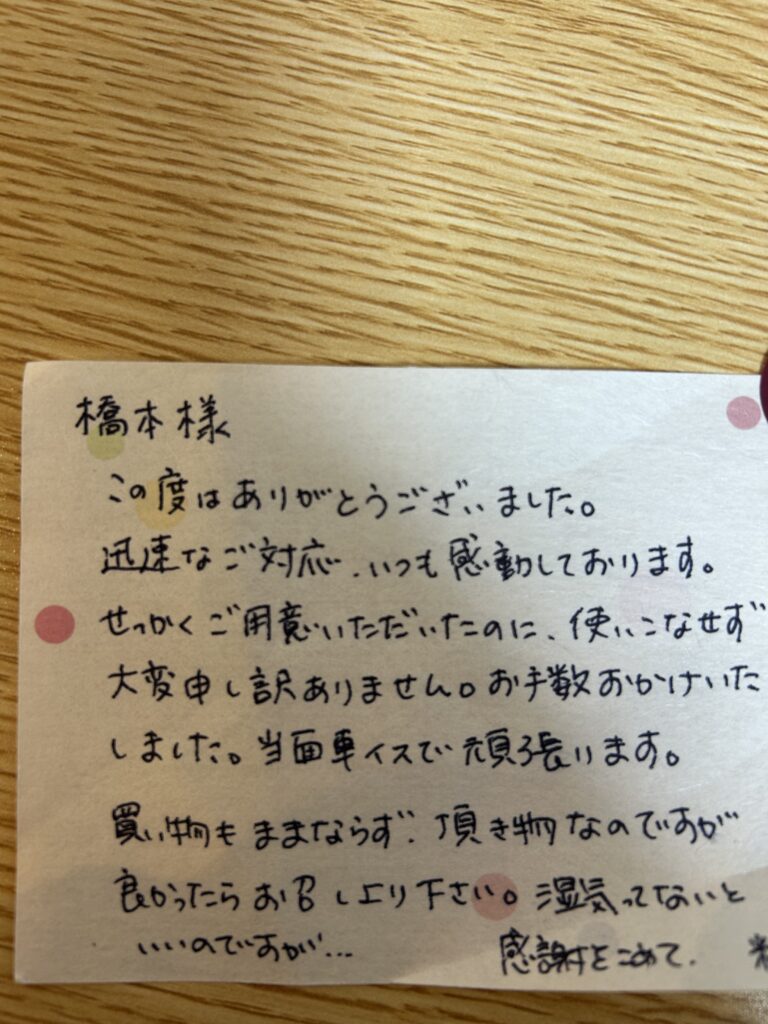 橋本様
この度はありがとうございました。
迅速なご対応、いつも感動しております。
せっかくご用意いただいたのに、使いこなせず
大変申し訳ありません。お手数おかけいた
しました。当面車イスで頑張ります。
買い物もままならず、頂き物なのですが
良かったらお召し上り下さい。湿気ってないと
いいのですが… 感謝をこめて、